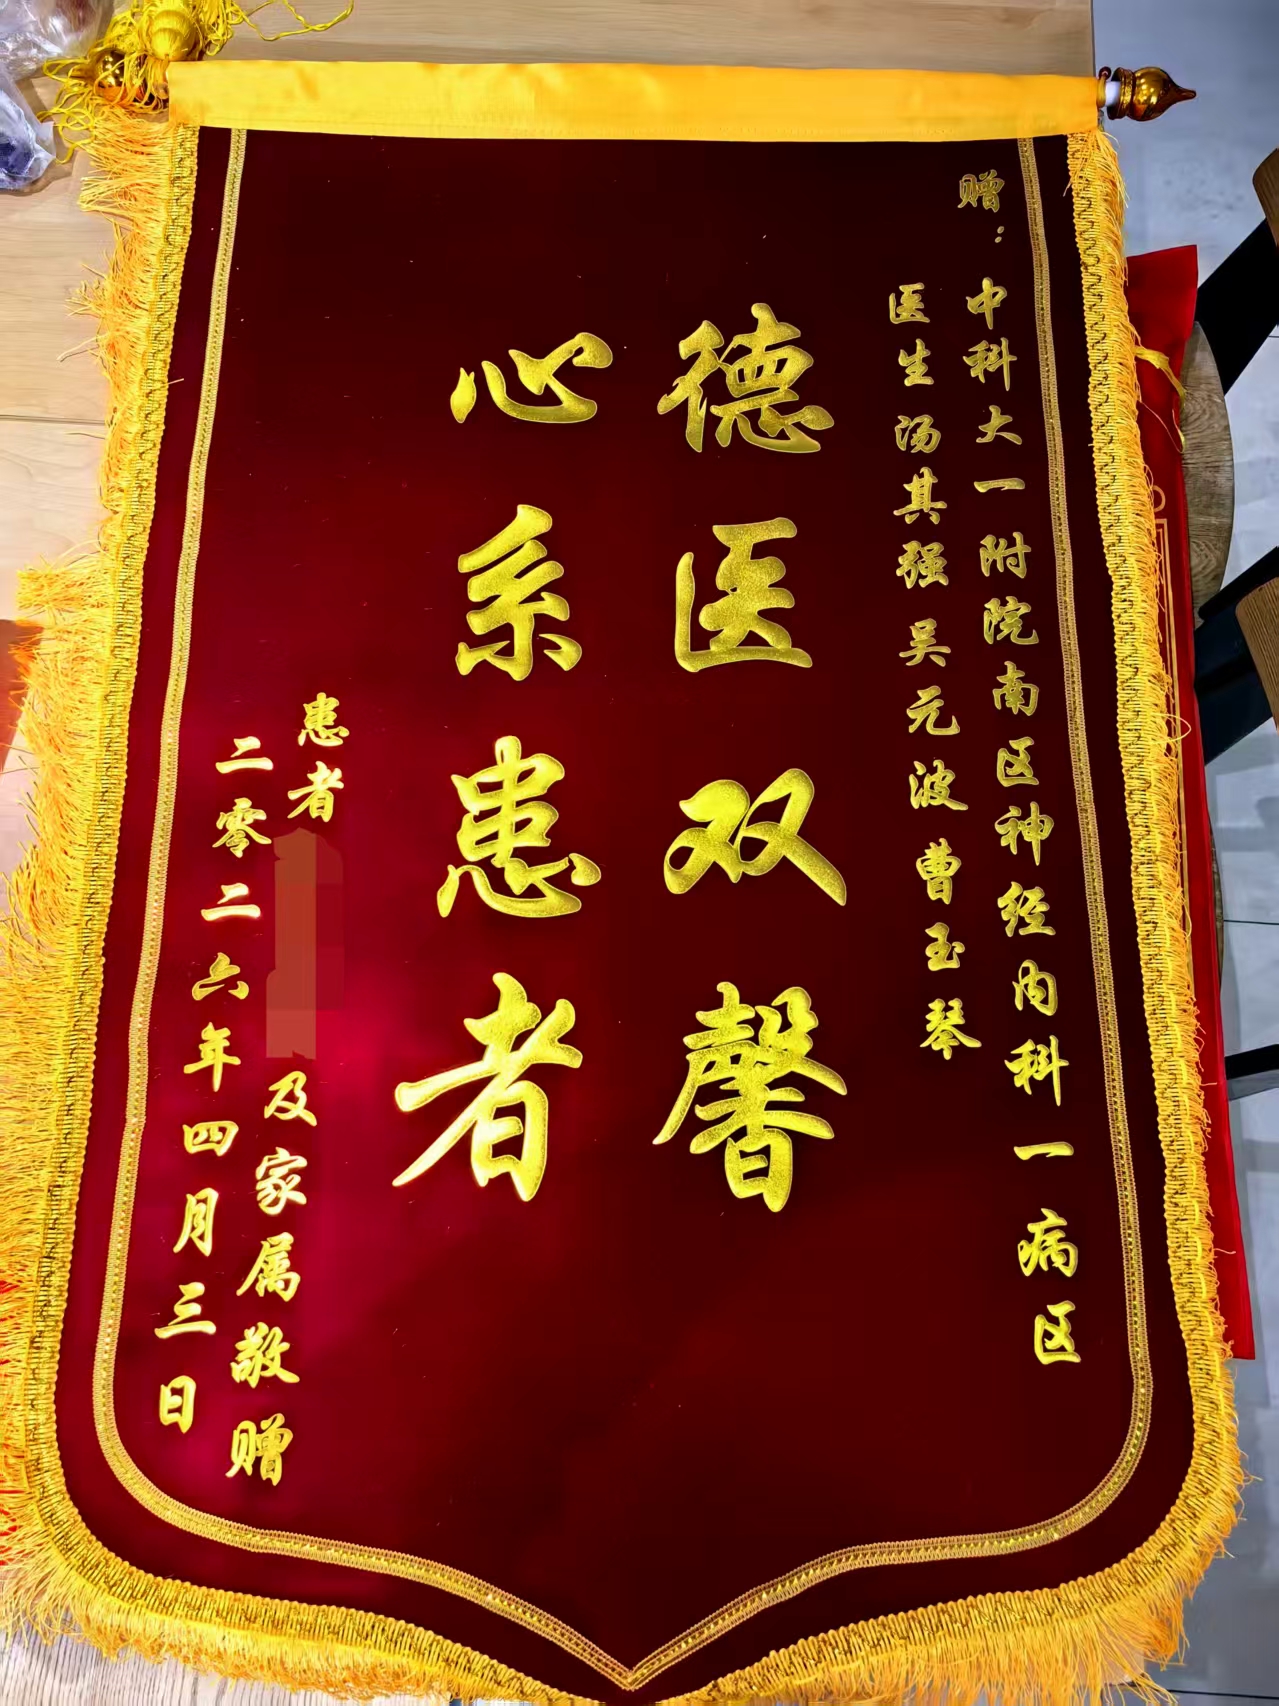 赠：中科大一附院南区神经内科一病区
医生汤其强 吴元波 曹玉琴
德医双馨
心系患者
患者 及家属敬赠
二零二六年四月三日